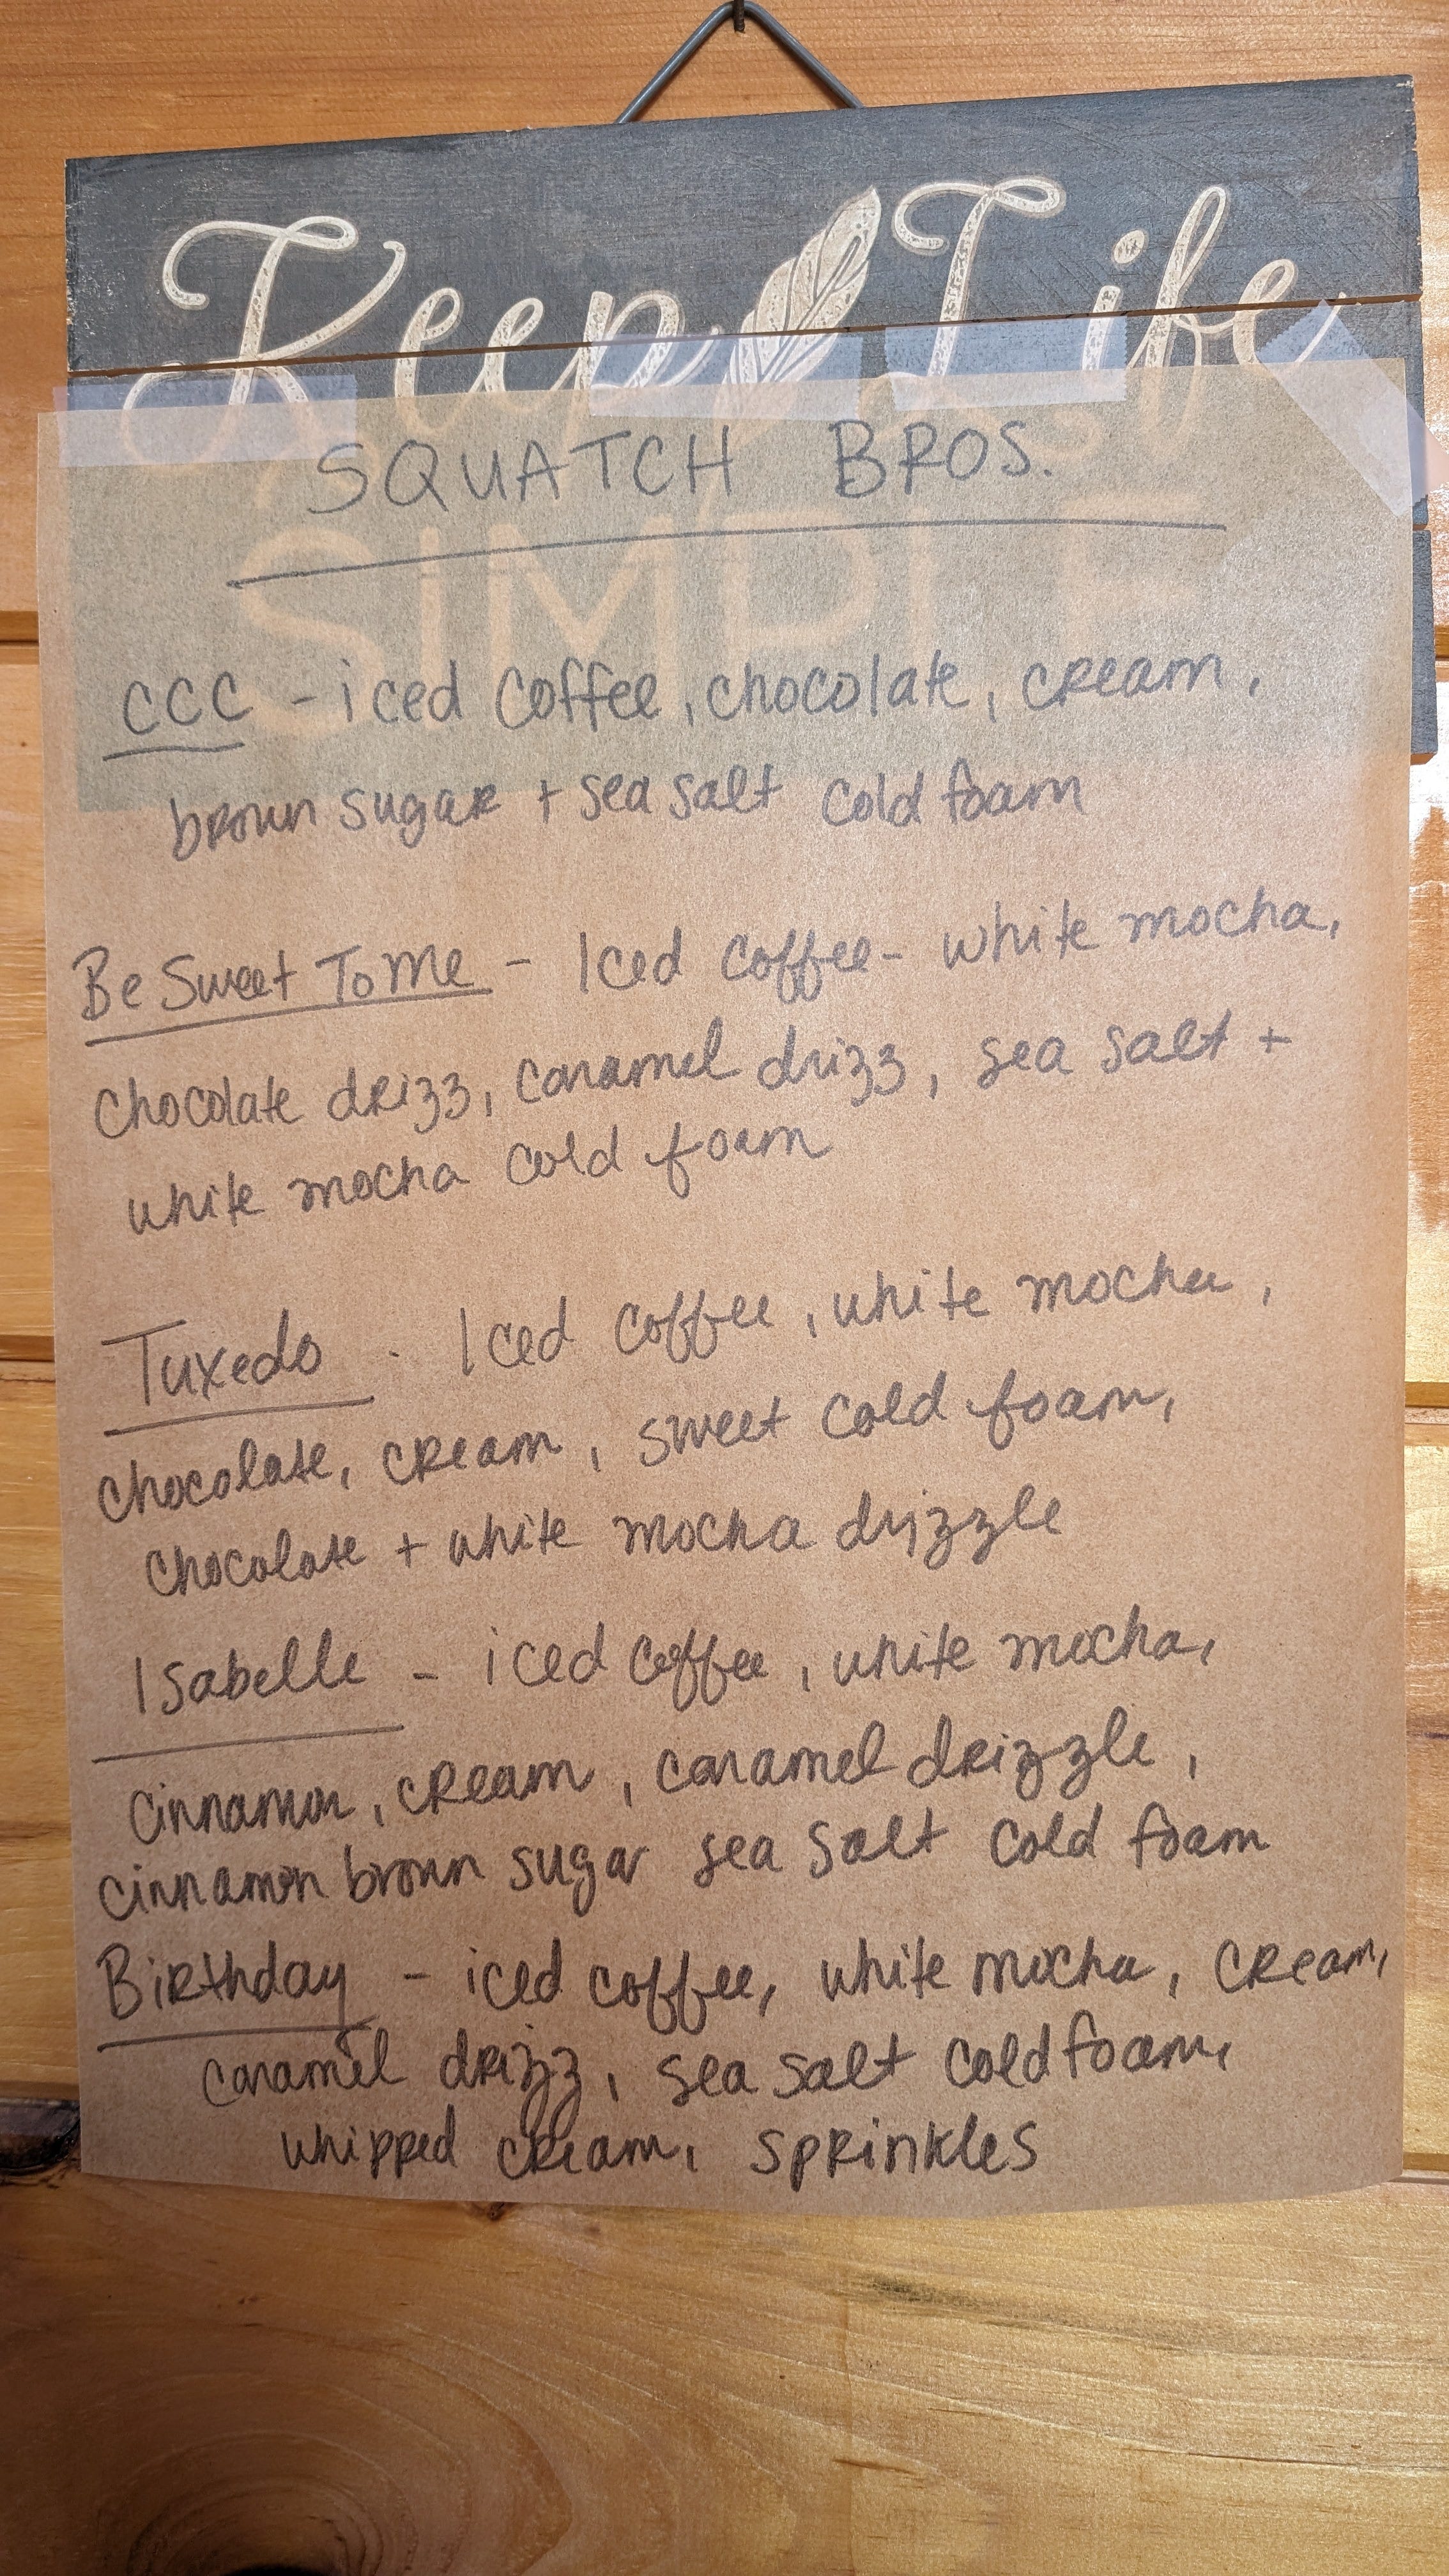 Keep Life
SIMPLE
SQUATCH BROS.
CCC - iced coffee, chocolate, cream,
brown sugar + sea salt cold foam
Be Sweet To Me - Iced coffee - white mocha,
chocolate drizz, caramel drizz, sea salt +
white mocha cold foam
Tuxedo - Iced coffee, white mocha,
chocolate, cream, sweet cold foam,
chocolate + white mocha drizzle
Isabelle - iced coffee, white mocha,
cinnamon, cream, caramel drizzle,
cinnamon brown sugar sea salt cold foam
Birthday - iced coffee, white mocha, cream,
caramel drizz, sea salt cold foam,
whipped cream, sprinkles